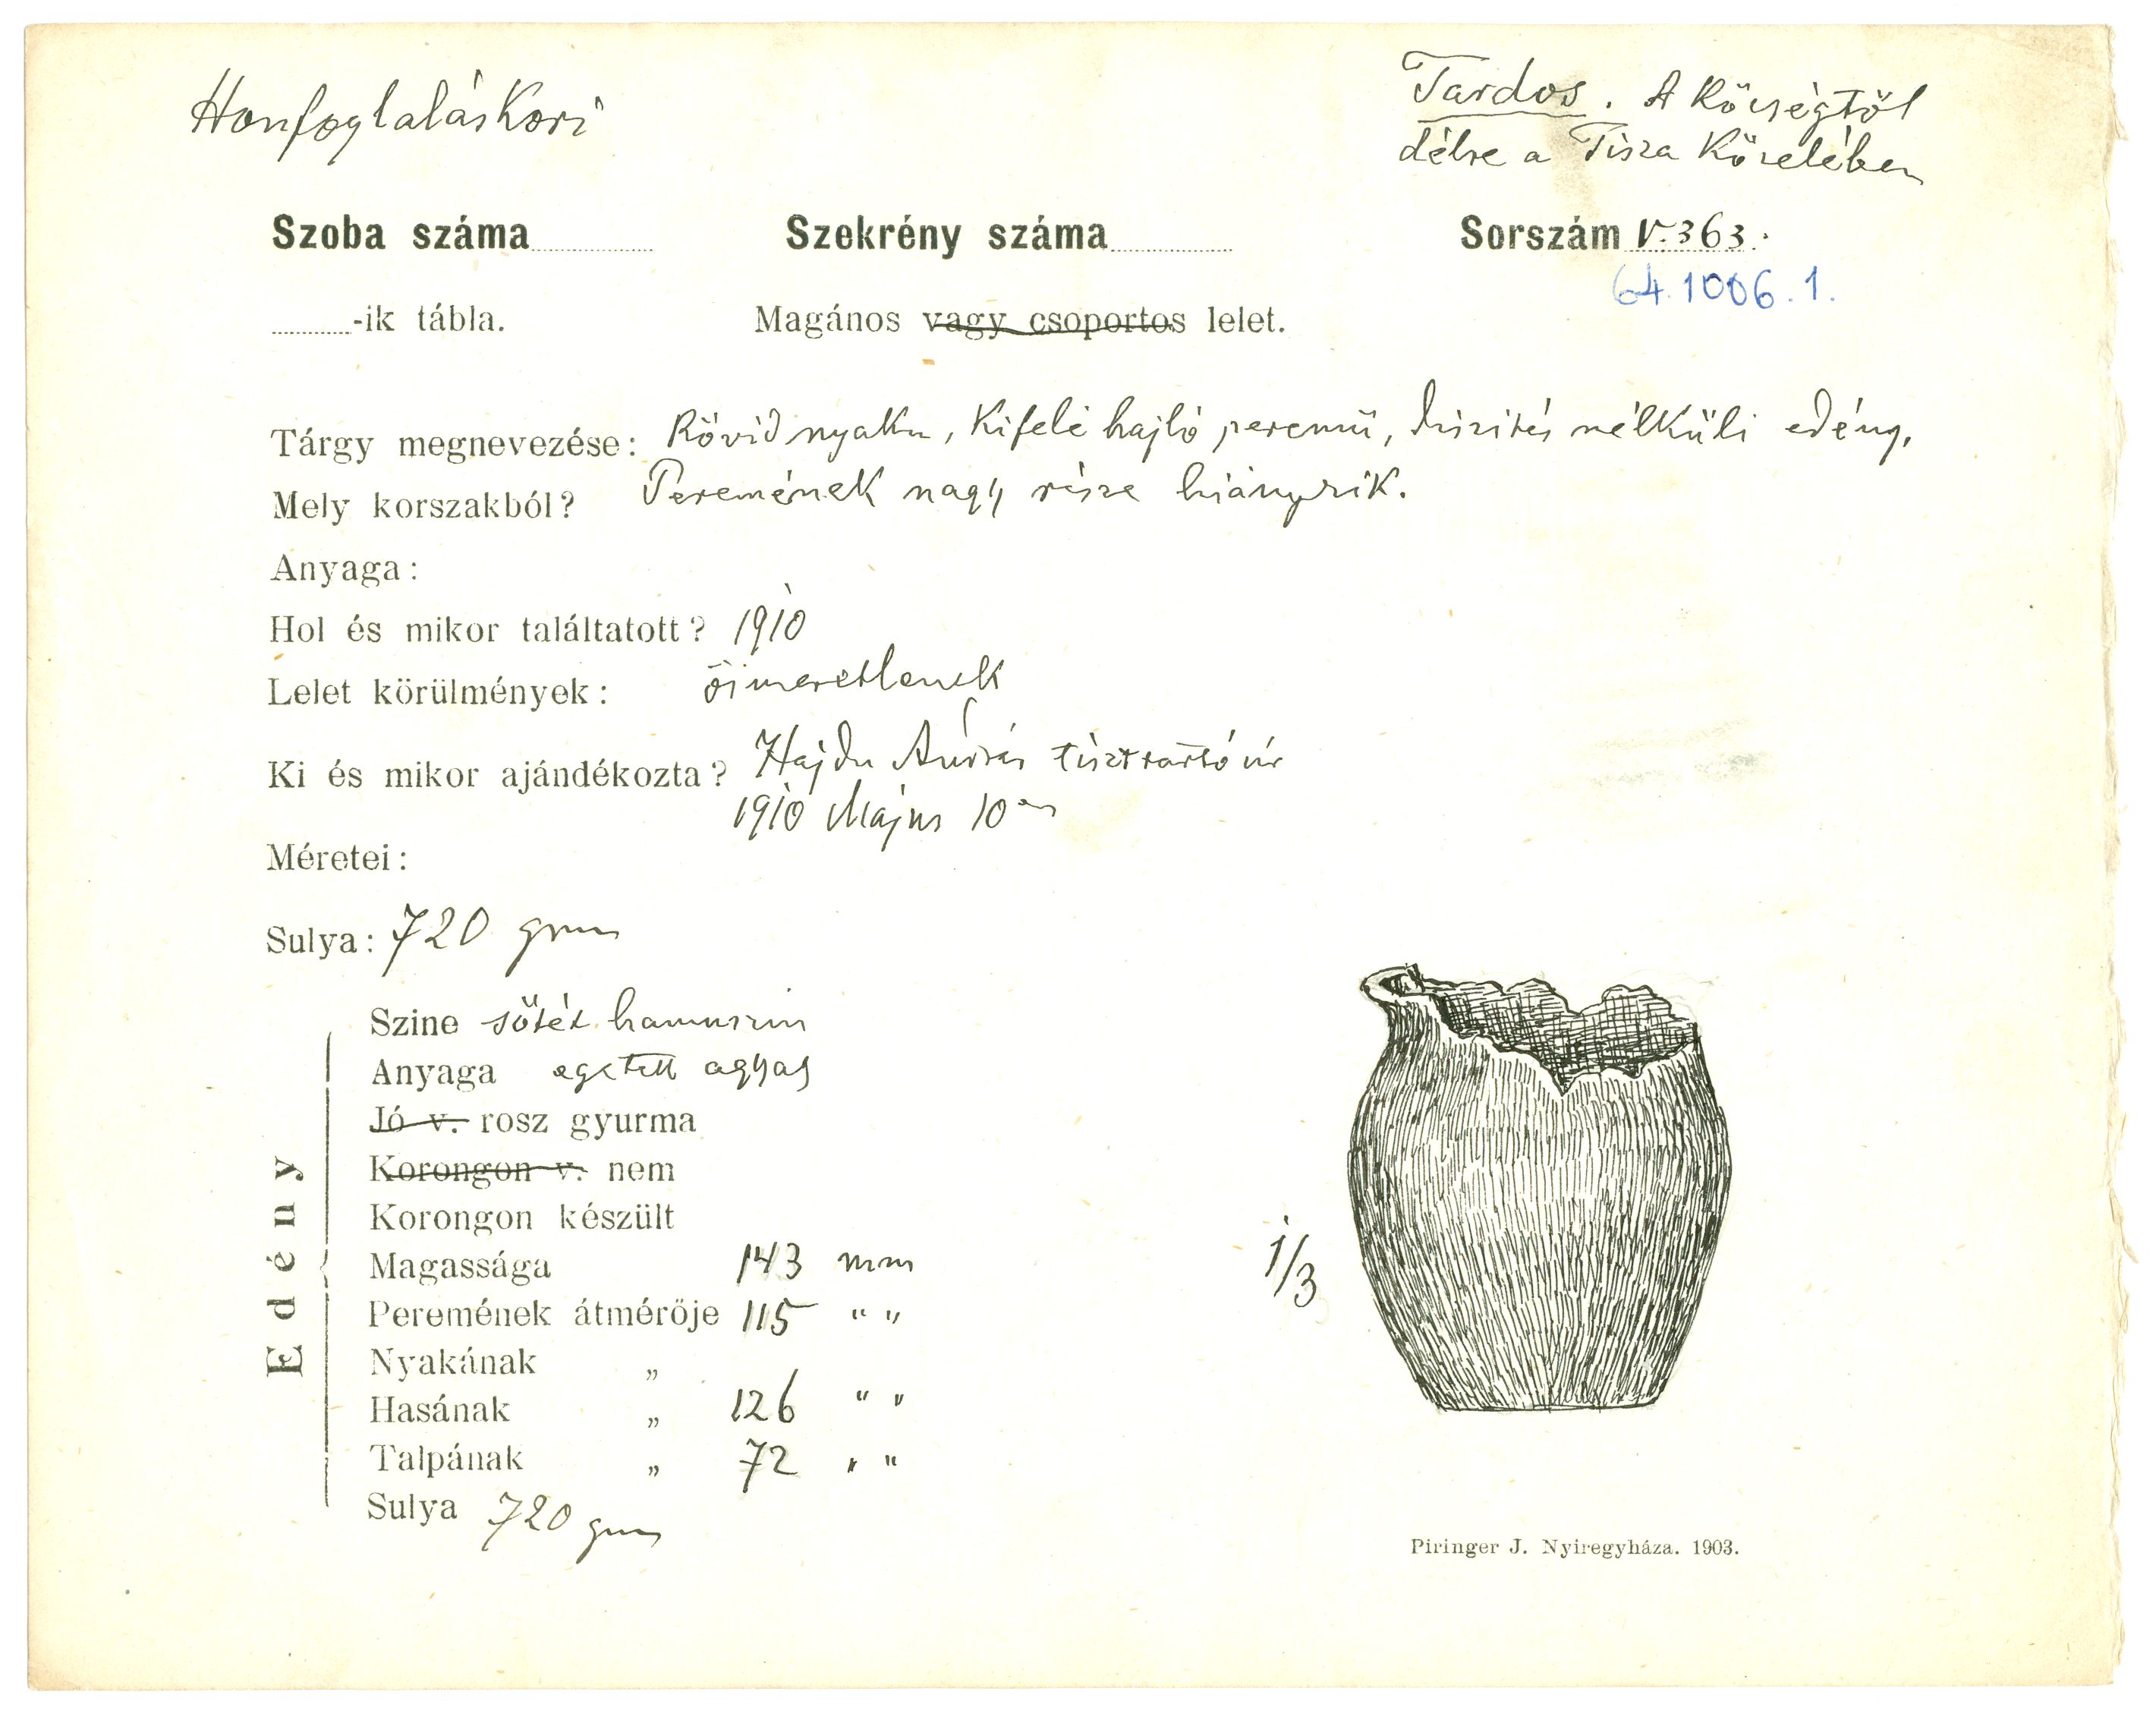 Honfoglaláskori
Tardos. A Község­től
délre a Tisza Közelében
Szoba száma
Szekrény száma
Sorszám V.363.
64.1006.1.
-ik tábla.
Magános vagy csoportos lelet.
Tárgy megnevezése: Rövid nyaku, Kifelé hajló peremü, díszités nélküli edény.
Peremének nagy része hiányzik.
Mely korszakból?
Anyaga:
Hol és mikor találtatott? 1910
Lelet körülmények: ösmeretlenek
Ki és mikor ajándékozta? Hajdu András tiszttartó úr
1910 Május 10-én
Méretei:
Sulya: 720 grm
Edény
Szine sötét hamuszin
Anyaga egetett agyag
Jó v. rosz gyurma
Korongon v. nem
Korongon készült
Magassága 143 mm
Peremének átmérője 115 " "
Nyakának "
Hasának " 126 " "
Talpának " 72 " "
Sulya 720 grm
1/3
Piringer J. Nyiregyháza. 1903.